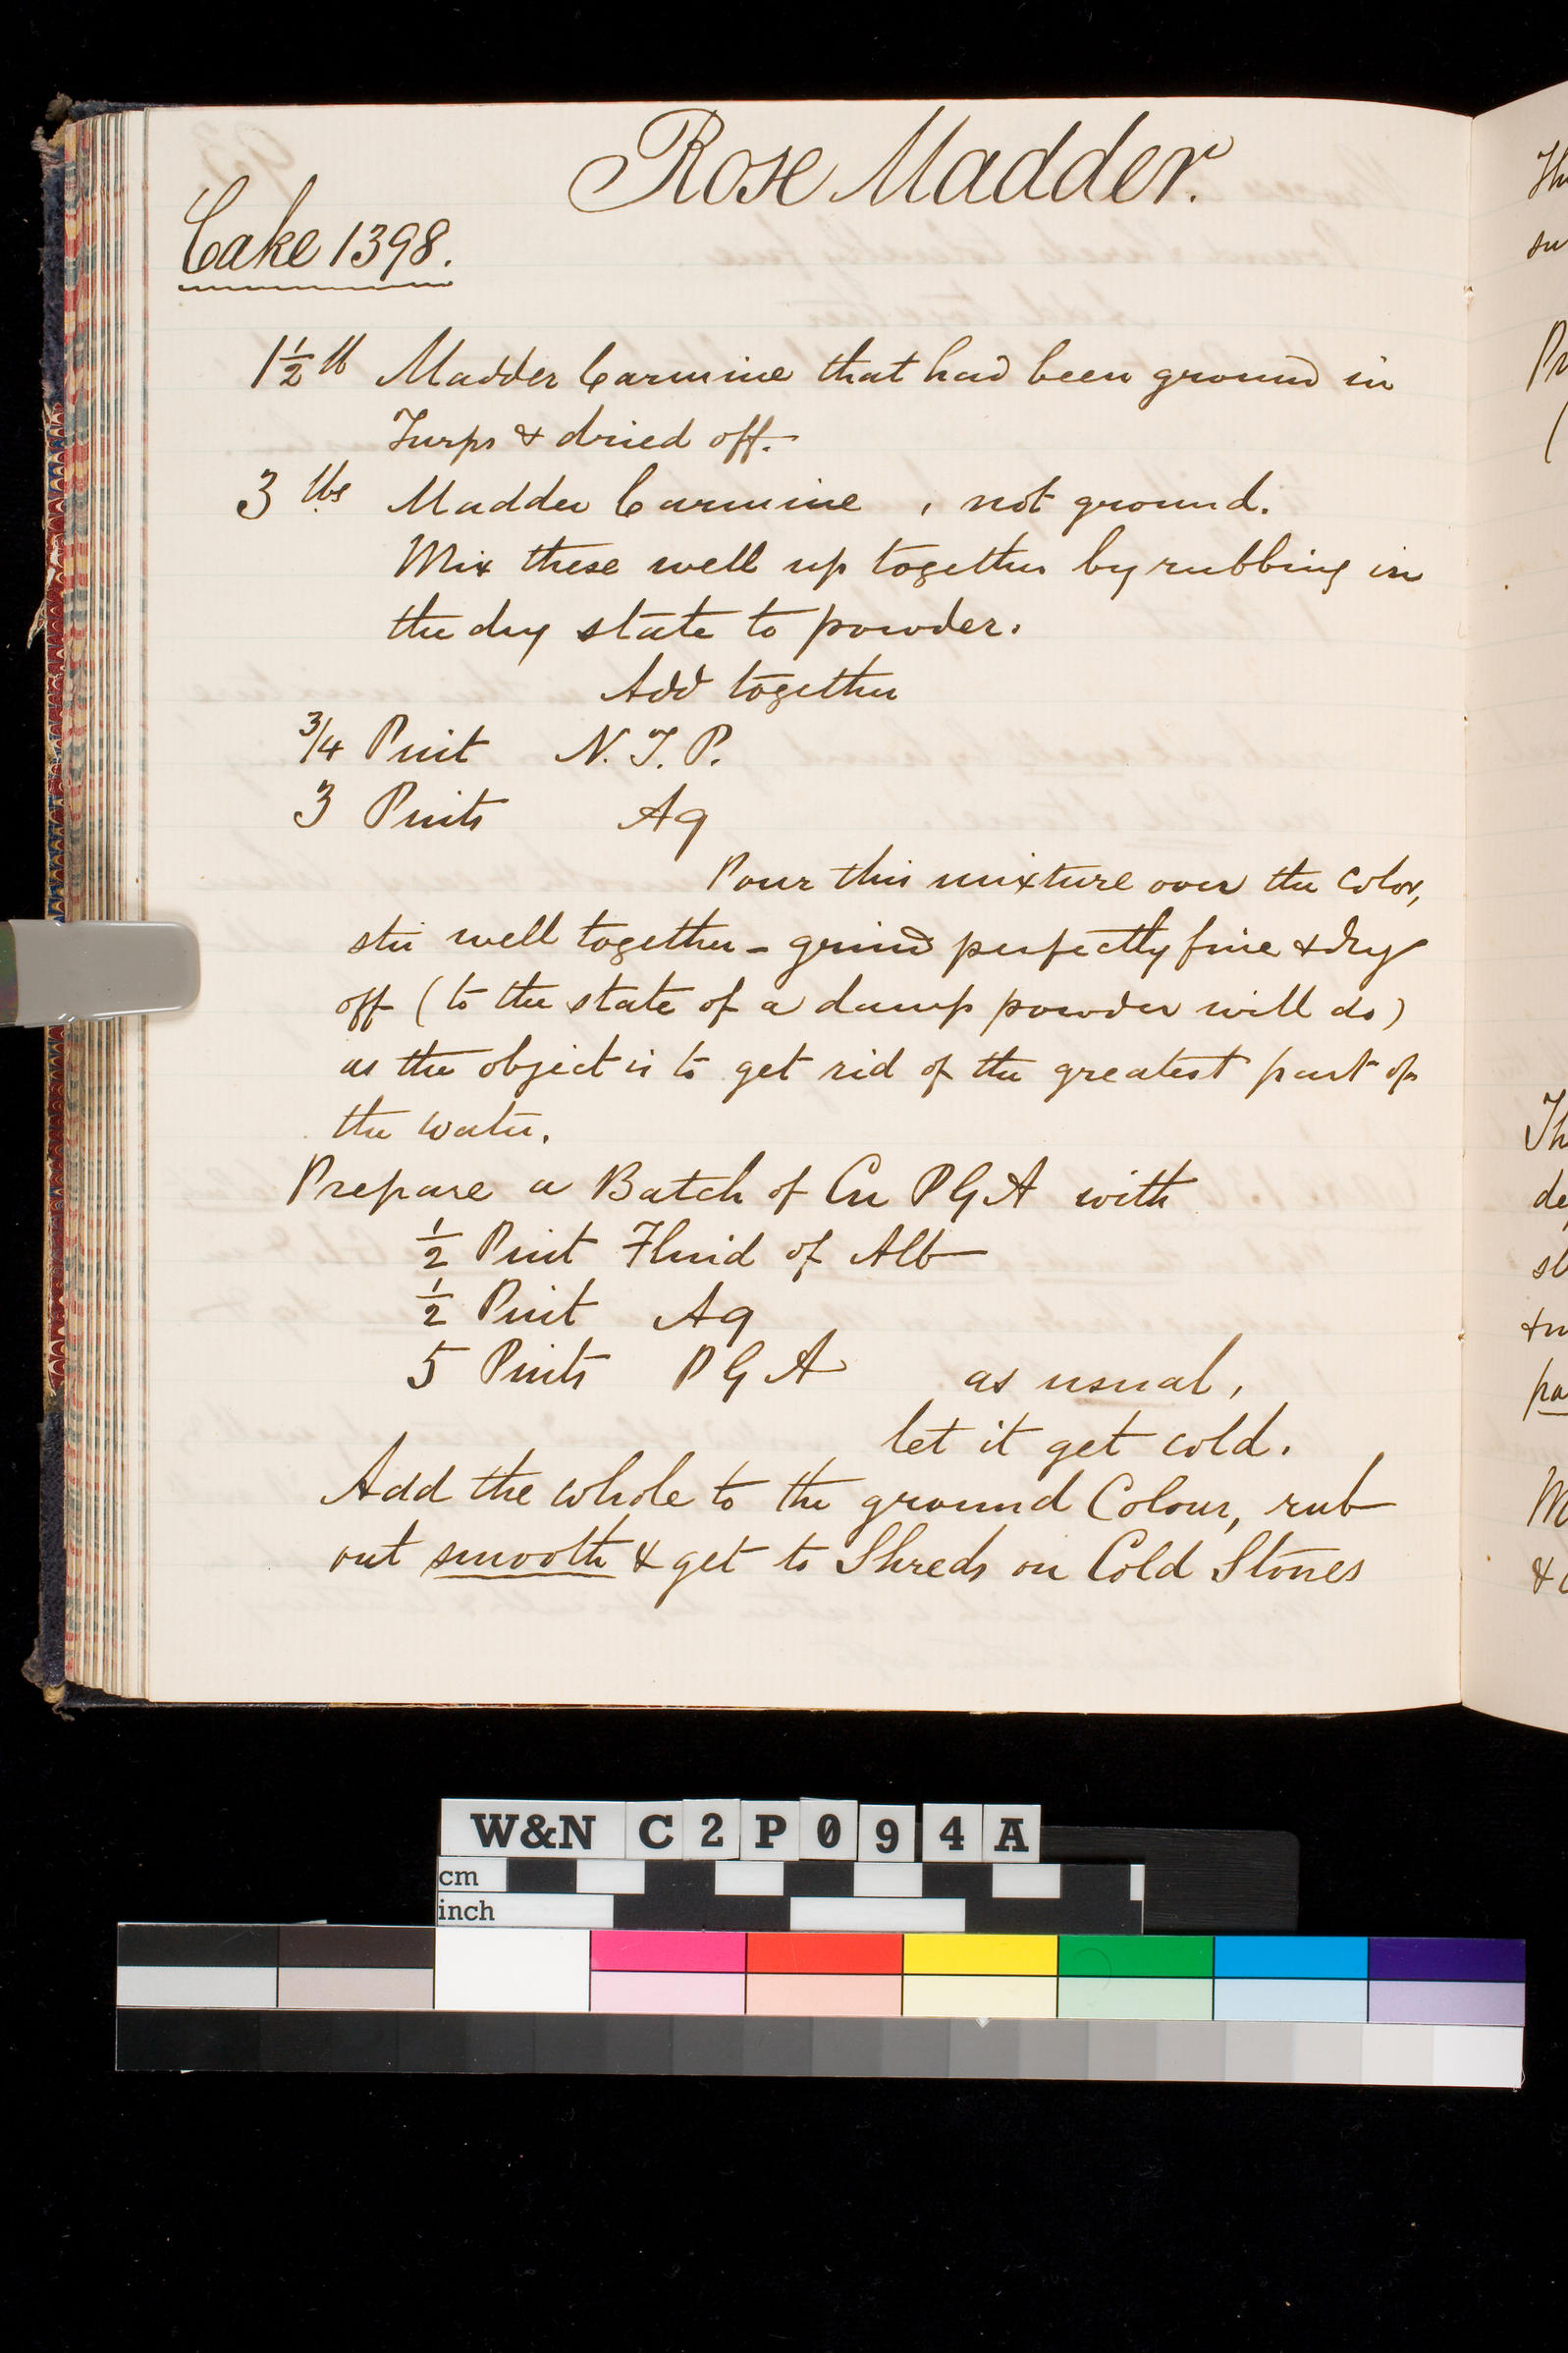 Rose Madder.
Cake 1398.
1½ lb Madder Carmine that had been ground in
Turps & dried off.
3 lbs Madder Carmine , not ground.
Mix these well up together by rubbing in
the dry state to powder.
Add together
3/4 Pint N. T. P.
3 Pints Aq
Pour this mixture over the color,
stir well together - grind perfectly fine & dry
off (to the state of a damp powder will do)
as the object is to get rid of the greatest part of
the water.
Prepare a Batch of Cu P G A with
½ Pint Fluid of Alb
½ Pint Aq
5 Pints P G A as usual,
let it get cold.
Add the whole to the ground Colour, rub
out smooth & get to Shreds on Cold Stones
W&N C2P094A
cm
inch